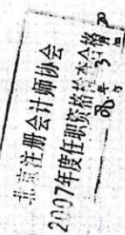 北京注册会计师协会
2007年度任职资格检查合格
08年3月 日